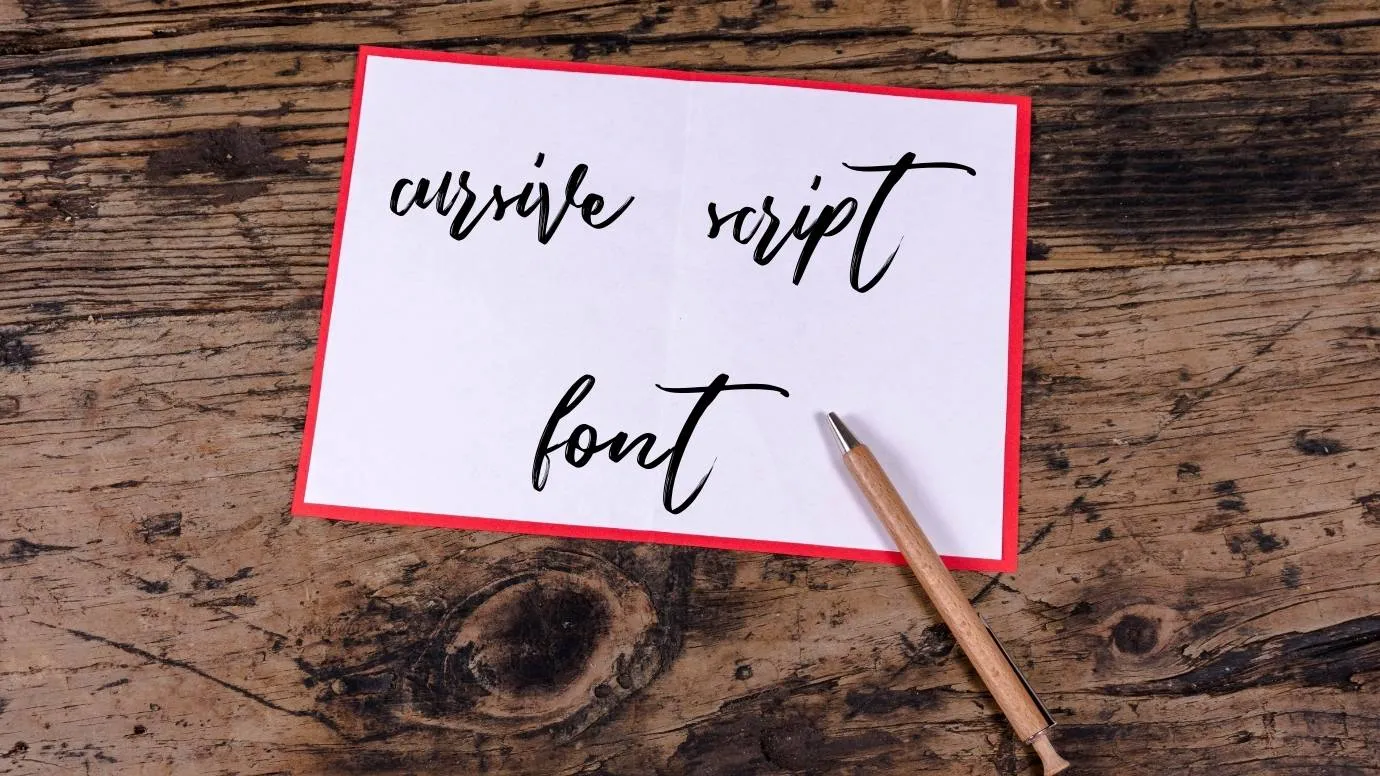 cursive script
font